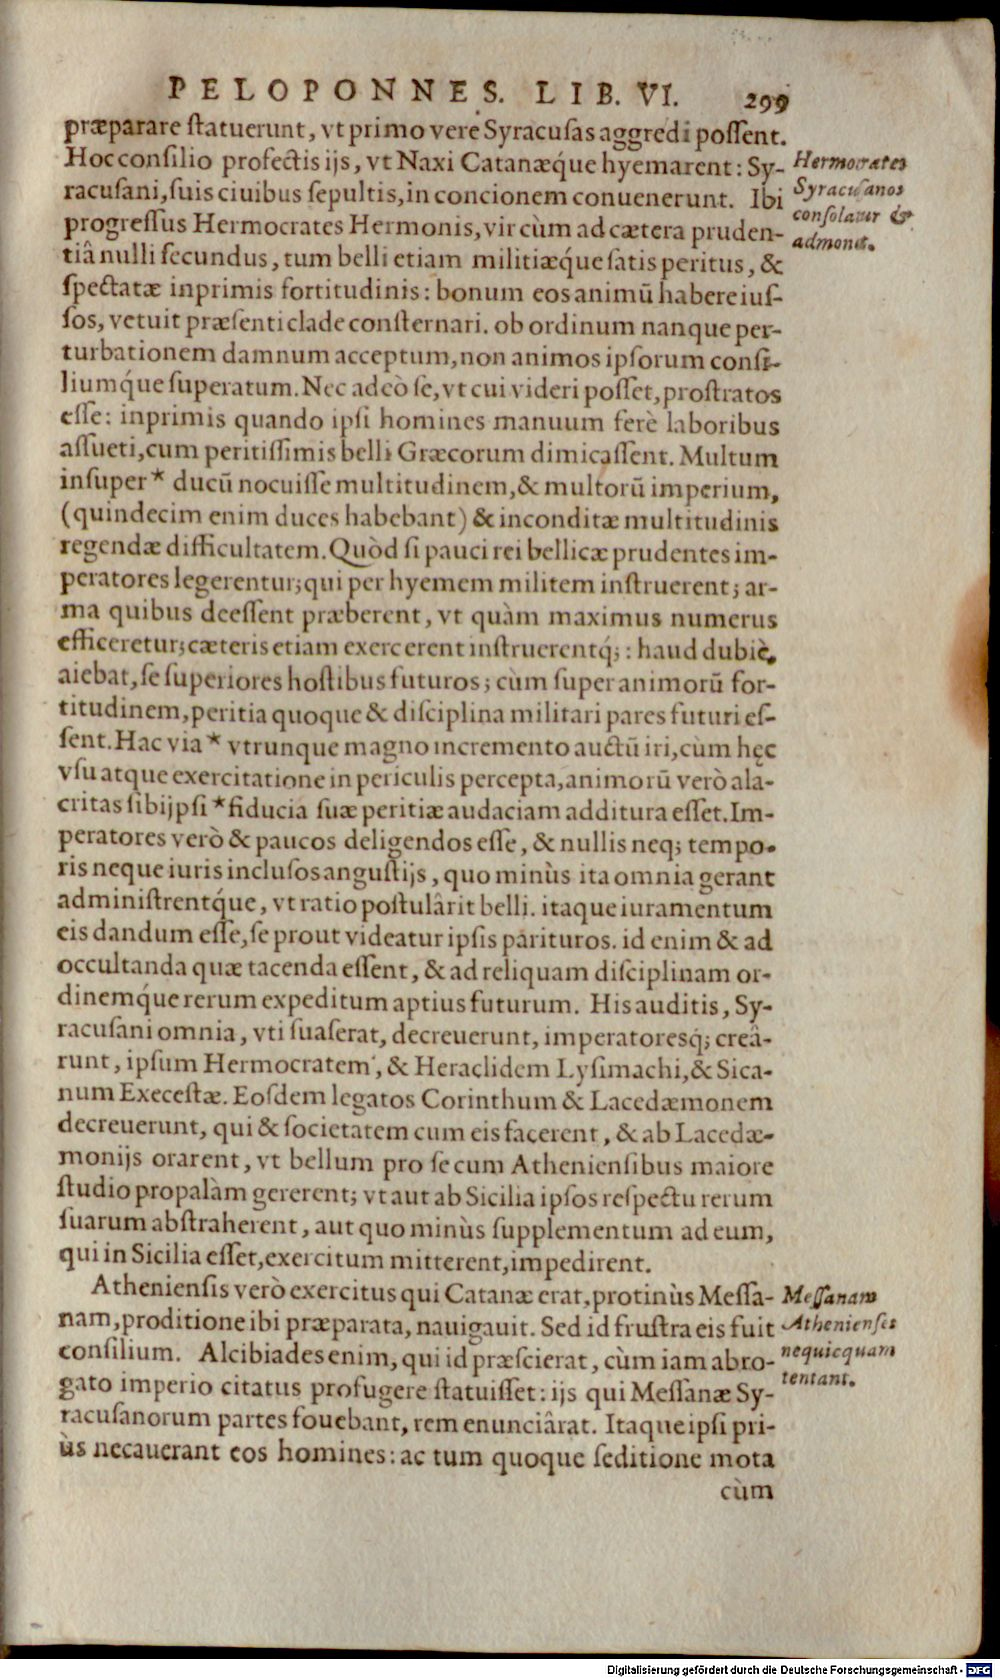 PELOPONNES. LIB. VI. 299
præparare ſtatuerunt, vt primo vere Syracuſas aggredi poſſent.
Hoc conſilio profectis ijs, vt Naxi Catanæq́ue hyemarent: Sy-
racuſani, ſuis ciuibus ſepultis, in concionem conuenerunt. Ibi
progreſſus Hermocrates Hermonis, vir cùm ad cætera pruden-
tiâ nulli ſecundus, tum belli etiam militiæq́ue ſatis peritus, &
ſpectatæ inprimis fortitudinis: bonum eos animū habere iuſ-
ſos, vetuit præſenti clade conſternari. ob ordinum nanque per-
turbationem damnum acceptum, non animos ipſorum conſi-
liumq́ue ſuperatum. Nec adeò ſe, vt cui videri poſſet, proſtratos
eſſe: inprimis quando ipſi homines manuum ferè laboribus
aſſueti, cum peritiſſimis belli Græcorum dimicaſſent. Multum
inſuper * ducū nocuiſſe multitudinem, & multorū imperium,
(quindecim enim duces habebant) & inconditæ multitudinis
regendæ difficultatem. Quòd ſi pauci rei bellicæ prudentes im-
peratores legerentur; qui per hyemem militem inſtruerent; ar-
ma quibus deeſſent præberent, vt quàm maximus numerus
efficeretur; cæteris etiam exercerent inſtruerentq́;: haud dubiè,
aiebat, ſe ſuperiores hoſtibus futuros; cùm ſuper animorū for-
titudinem, peritia quoque & diſciplina militari pares futuri eſ-
ſent. Hac via * vtrunque magno incremento auctū iri, cùm hęc
vſu atque exercitatione in periculis percepta, animorū verò ala-
critas ſibijpſi * fiducia ſuæ peritiæ audaciam additura eſſet. Im-
peratores verò & paucos deligendos eſſe, & nullis neq; tempo-
ris neque iuris incluſos anguſtijs, quo minùs ita omnia gerant
adminiſtrentq́ue, vt ratio poſtulârit belli. itaque iuramentum
eis dandum eſſe, ſe prout videatur ipſis parituros. id enim & ad
occultanda quæ tacenda eſſent, & ad reliquam diſciplinam or-
dinemq́ue rerum expeditum aptius futurum. His auditis, Sy-
racuſani omnia, vti ſuaſerat, decreuerunt, imperatoresq́; creâ-
runt, ipſum Hermocratem, & Heraclidem Lyſimachi, & Sica-
num Execeſtæ. Eoſdem legatos Corinthum & Lacedæmonem
decreuerunt, qui & ſocietatem cum eis facerent, & ab Lacedæ-
monijs orarent, vt bellum pro ſe cum Athenienſibus maiore
ſtudio propalàm gererent; vt aut ab Sicilia ipſos reſpectu rerum
ſuarum abſtraherent, aut quo minùs ſupplementum ad eum,
qui in Sicilia eſſet, exercitum mitterent, impedirent.
Athenienſis verò exercitus qui Catanæ erat, protinùs Meſſa-
nam, proditione ibi præparata, nauigauit. Sed id fruſtra eis fuit
conſilium. Alcibiades enim, qui id præſcierat, cùm iam abro-
gato imperio citatus profugere ſtatuiſſet: ijs qui Meſſanæ Sy-
racuſanorum partes fouebant, rem enunciârat. Itaque ipſi pri-
ùs necauerant eos homines: ac tum quoque ſeditione mota
cùm
Hermocrates
Syracuſanos
conſolatur &
admonet.
Meſſanam
Athenienſes
nequicquam
tentant.
Digitalisierung gefördert durch die Deutsche Forschungsgemeinschaft - DFG